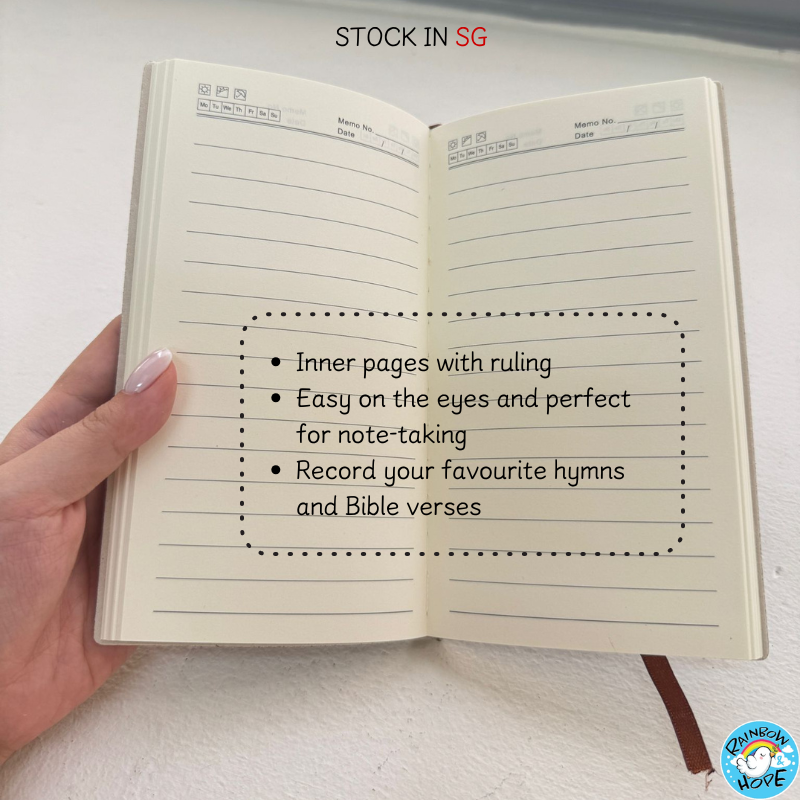 STOCK IN SG
Mo Tu We Th Fr Sa Su
Memo No.
Date / /
Mo Tu We Th Fr Sa Su
Memo No.
Date / /
• Inner pages with ruling
• Easy on the eyes and perfect
for note-taking
• Record your favourite hymns
and Bible verses
RAINBOW
&
HOPE